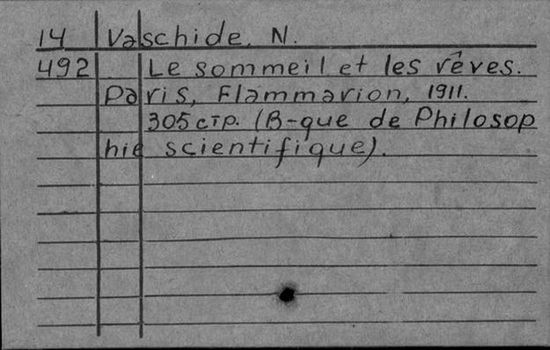 14 Vaschide, N.
492 Le sommeil et les rêves.
Paris, Flammarion, 1911.
305 стр. (B-que de Philosop
hie scientifique).